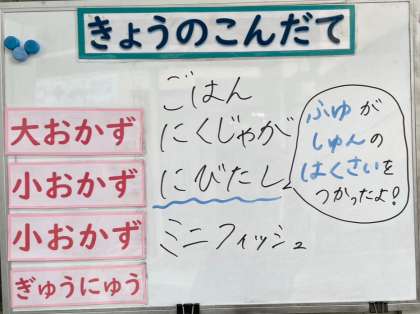 きょうのこんだて
ごはん
大おかず にくじゃが
小おかず にびたし
ふゆが
しゅんの
はくさいを
つかったよ!
小おかず ミニフィッシュ
ぎゅうにゅう